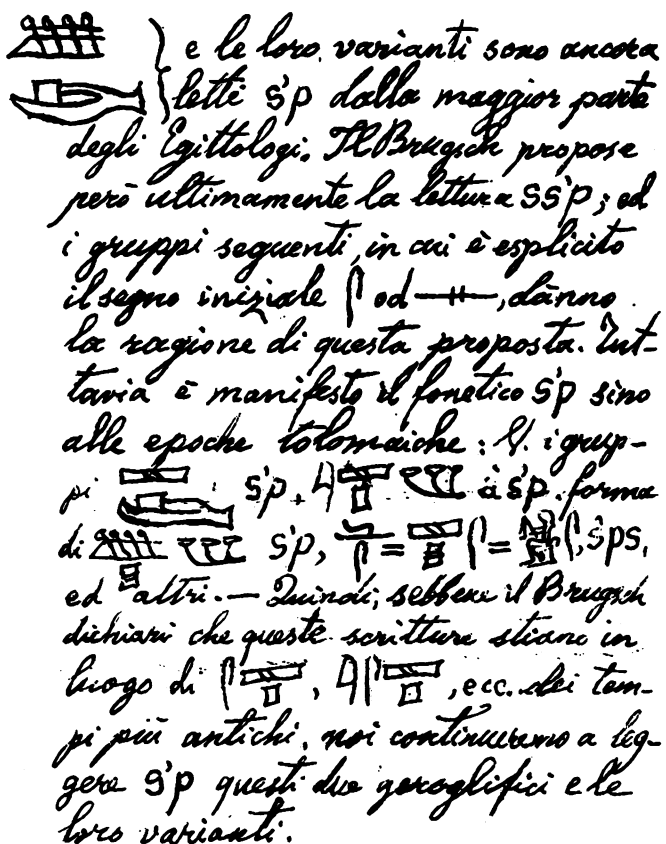 e le loro varianti sono ancora
letti s'p dalla maggior parte
degli Egittologi. Il Brugsch propose
però ultimamente la lettura ss'p; ed
i gruppi seguenti, in cui è esplicito
il segno iniziale 𓋴 od 𓊃, dànno
la ragione di questa proposta. Tut-
tavia è manifesto il fonetico s'p sino
alle epoche tolomaiche: V. i grup-
pi s'p, às'p forma
di s'p, = = s'ps,
ed altri. — Quindi, sebbene il Brugsch
dichiari che queste scritture stiano in
luogo di , , ecc. dei tem-
pi più antichi, noi continueremo a leg-
gere s'p questi due geroglifici e le
loro varianti.